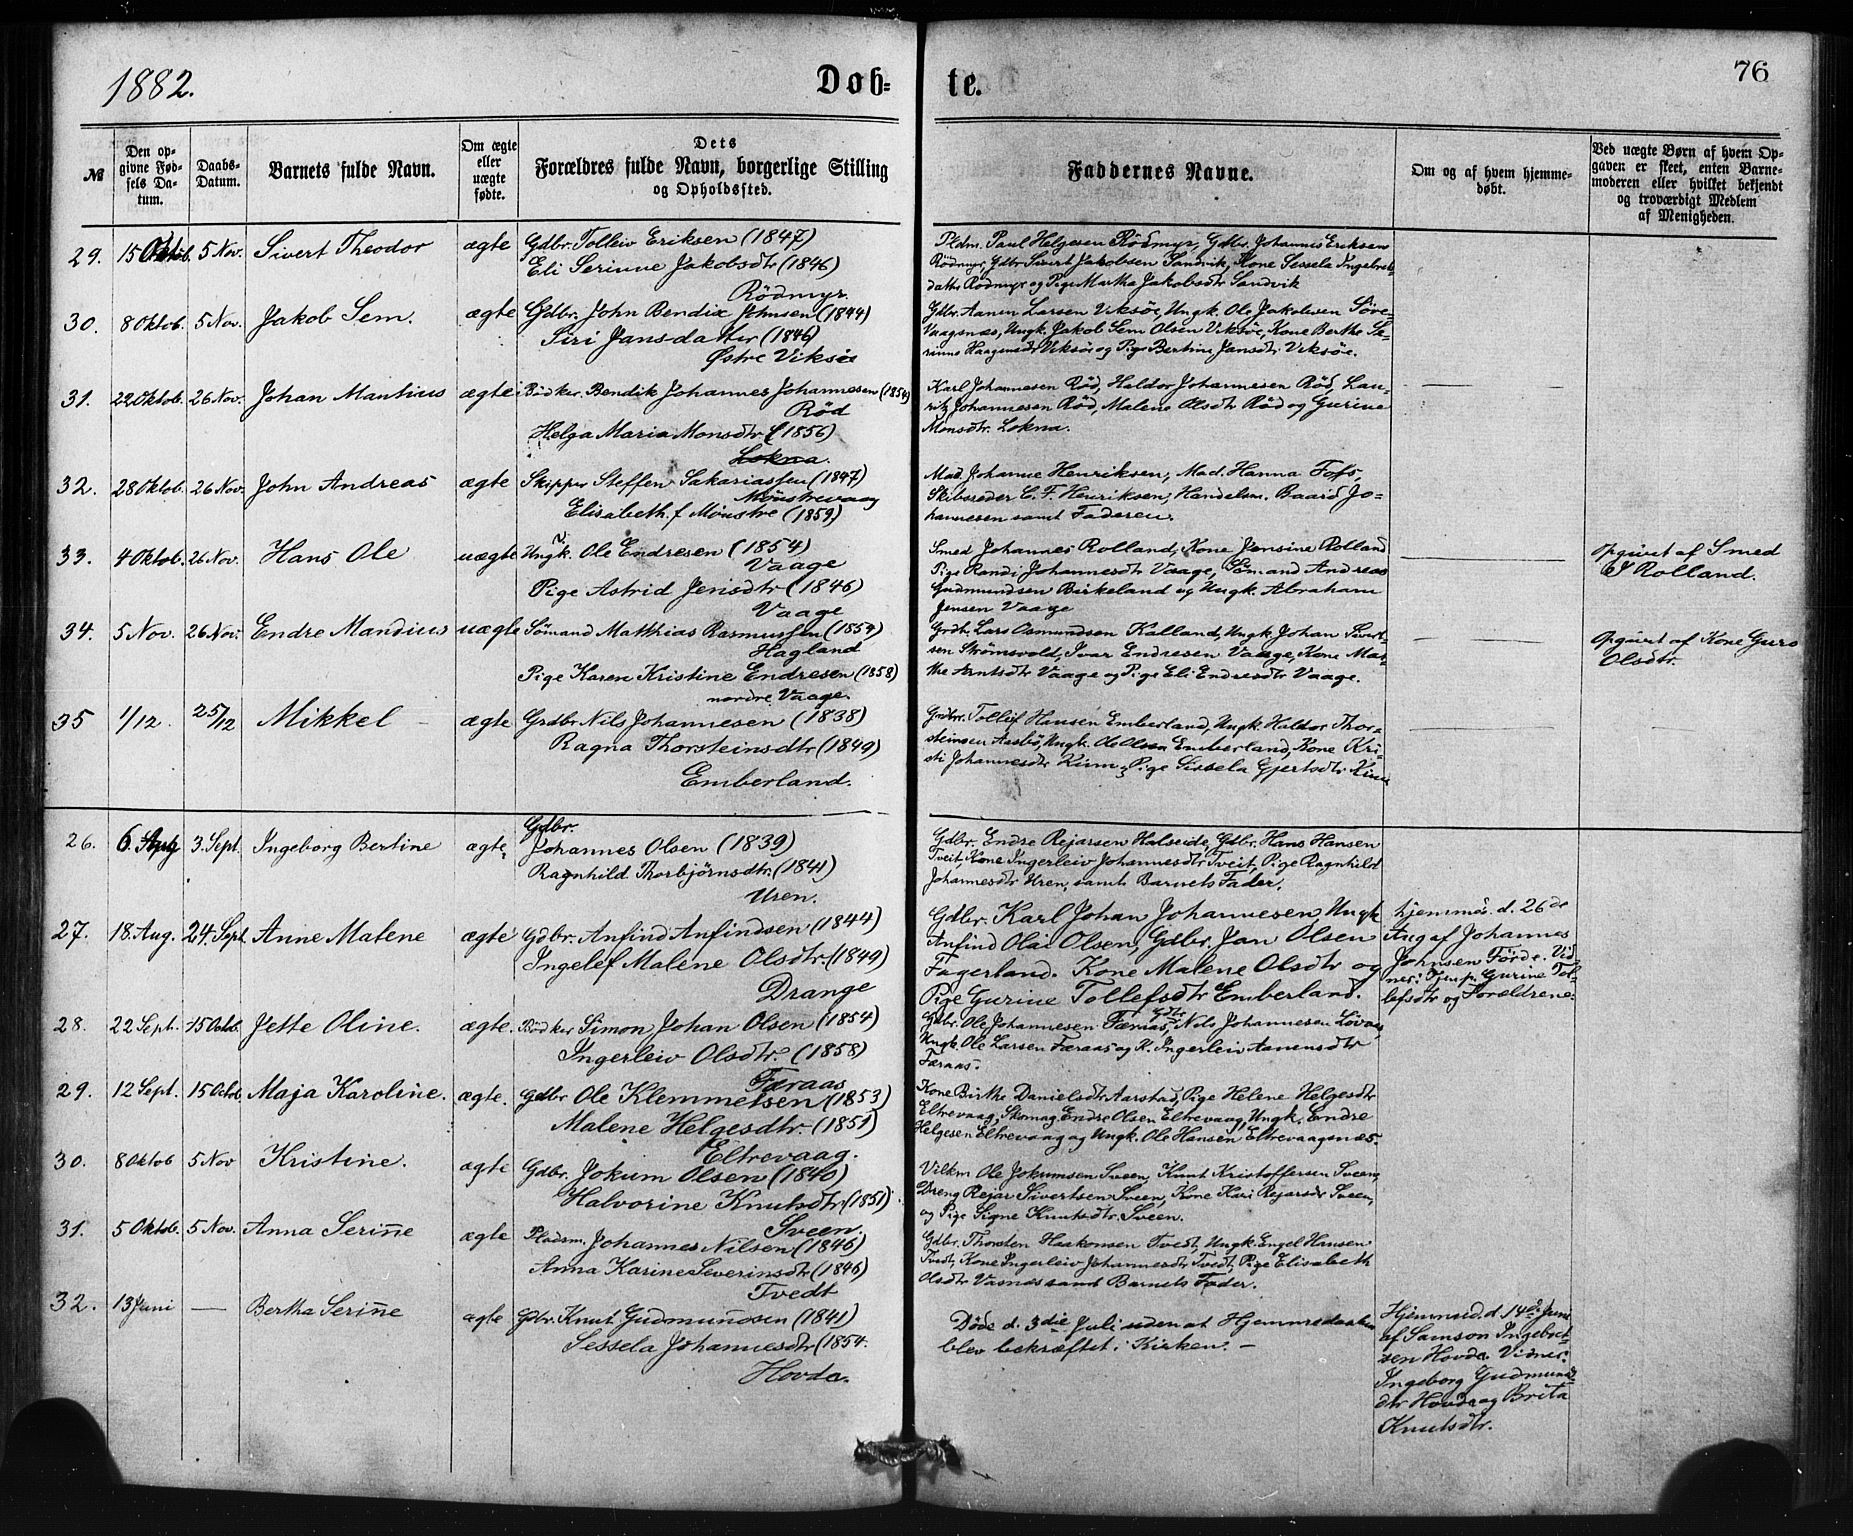 1882.
Døb=
te.
76
№
Den op-
givne Fød-
sels Da-
tum.
Daabs-
Datum.
Barnets fulde Navn.
Om ægte
eller
uægte
fødte.
Dets
Forældres fulde Navn, borgerlige Stilling
og Opholdssted.
Faddernes Navne.
Om og af hvem hjemme-
døbt.
Ved uægte Børn af hvem Op-
gaven er skeet, enten Barne-
moderen eller hvilket bekjendt
og troværdigt Medlem
af Menigheden.
29. 15 Oktob. 5 Nov. Sivert Theodor ægte Gdbr. Tolleiv Eriksen (1847)
Eli Serinne Jakobsdtr (1846)
Rödmyr.
Pldm. Paul Helgesen Rödmyr, Gdbr. Johannes Eriksen
Rödmyr, Gdbr Sivert Jakobsen Sandvik, Kone Sessela Ingebrets
datter Rödmyr og Pige Martha Jakobsdtr Sandvik
30. 8 Oktob. 5 Nov. Jakob Sem. ægte Gdbr. John Bendix Johnsen (1844)
Siri Jansdatter (1846)
Østre Viksöe
Gdbr. Aanen Larsen Viksöe, Ungk. Ole Jakobsen Söre-
Vaagsnæs, Ungk. Jakob Sem Olsen Viksöe, Kone Berthe Se-
rinne Haagensdtr Viksöe og Pige Bertine Jansdtr Viksöe.
31. 22 Oktob. 26 Nov. Johan Mantius ægte Bödker. Bendik Johannes Johannesen (1854)
Röd
Helga Maria Monsdtr (1856)
Lokna.
Karl Johannesen Röd, Haldor Johannesen Röd, Lau-
ritz Johannesen Röd, Malene Olsdtr Röd og Gurine
Monsdtr. Lokna.
32. 28 Oktob. 26 Nov. John Andreas ægte Skipper Steffen Sakariassen (1847)
Mönstrevaag
Elisabeth f Mönstre (1859)
Mad. Johanne Henriksen, Mad. Hanna Foss,
Skibsreder C. F. Henriksen, Handelsm. Baard Jo-
hannesen samt Faderen.
33. 4 Oktob. 26 Nov. Hans Ole uægte Ungk. Ole Endresen (1854)
Vaage
Pige Astrid Jensdtr (1846)
Vaage
Smed Johannes Rolland, Kone Jensine Rolland
Pige Randi Johannesdtr Vaage, Sömand Andreas
Gudmundsen Birkeland og Ungk. Abraham
Jensen Vaage
Opgivet af Smed
J Rolland.
34. 5 Nov. 26 Nov. Endre Mandius uægte Sömand Matthias Rasmussen (1854)
Hagland
Pige Karen Kristine Endresen (1858)
nordre Vaage.
Grdb. Lars Osmundsen Kalland, Ungk. Johan Sivert-
sen Strömsvold, Ivar Endresen Vaage, Kone Mar-
the Arntsdtr Vaage og Pige Eli Endresdtr Vaage.
Opgivet af Kone Guro
Olsdtr.
35 1/12. 25/12 Mikkel ægte Grdbr Nils Johannesen (1838)
Ragna Thorsteinsdtr (1849)
Emberland.
Grdbr. Tollef Hansen Emberland, Ungk. Haldor Thor-
steinsen Aasbö, Ungk. Ole Olsen Emberland, Kone Kri-
sti Johannesdtr Kinn, Pige Sissela Gjertsdtr Kinn
26. 6. Aug 3. Sept. Ingeborg Bertine ægte. Gdbr.
Johannes Olsen (1839)
Ragnhild Thorbjörnsdtr. (1841)
Uren.
Gdbr. Endre Rejarsen Halseide, Gdbr. Hans Hansen
Tveit, Kone Ingerleiv Johannesdtr Tveit, Pige Ragnhild
Johannesdtr Uren, samt Barnets Fader.
27. 18. Aug. 24. Sept. Anne Malene ægte Gdbr. Anfind Anfindsen (1844)
Ingelef Malene Olsdtr. (1849)
Drange
Gdbr. Karl Johan Johannesen, Ungk
Anfind Olai Olsen, Gdbr. Jan Olsen
Fagerland. Kone Malene Olsdtr og
Pige Gurine Tollefsdtr Emberland.
hjemmd. d. 26de
Aug af Johannes
Johnsen Förde. Vid-
ner: Tjenp. Gurine Tol-
lefsdtr og Forældrene.
28. 22 Sept. 15 Octob. Jette Oline. ægte. Bödker Simon Johan Olsen (1854)
Ingerleiv Olsdtr. (1858)
Færaas
Gdbr. Ole Johannesen Færaas, Gdbr. Nils Johannesen Lövaas,
Ungk. Ole Larsen Færaas og K. Ingerleiv Aanensdtr
Færaas.
29. 12 Sept. 15 Octob. Maja Karoline. ægte. Gdbr Ole Klemmetsen (1853)
Malene Helgesdtr. (1851)
Eltrevaag.
Kone Birthe Danielsdtr Aarstad, Pige Helene Helgesdtr
Eltrevaag, Skomag. Endre Olsen Eltrevaag, Ungk. Endre
Helgesen Eltrevaag og Ungk. Ole Hansen Eltrevaagsnæs.
30. 8 Oktob 5 Nov Kristine. ægte Gdbr. Jokum Olsen (1840)
Halvorine Knutsdtr (1851)
Sveen.
Vilkm Ole Jokumsen Sveen, Knut Kristoffersen Sveen,
Dreng Rejar Sivertsen Sveen, Kone Kari Rejarsdr Sveen,
og Pige Signe Knutsdtr. Sveen.
31. 5 Oktob. 5 Nov. Anna Serine ægte Pladsm. Johannes Nilsen (1846)
Anna Karine Severinsdtr (1846)
Tvedt
Gdbr. Thorsten Haakonsen Tvedt, Ungk. Engel Hansen
Tvedt, Kone Ingerleiv Johannesdtr Tvedt, Pige Elisabeth
Olsdtr Vasnæs samt Barnets Fader.
32. 13 Juni — Bertha Serine ægte Gdbr. Knut Gudmundsen (1841)
Sessela Johannesdtr (1854.
Hovda.
Døde d. 3die Juli uden at Hjemmedaaben
blev bekræftet i Kirken. —
Hjemmed. d. 14de Juni
af Samson Ingebrct-
sen Hovda. Vidner:
Ingeborg Gudmunds-
dtr Hovda og Brita
Knutsdtr.